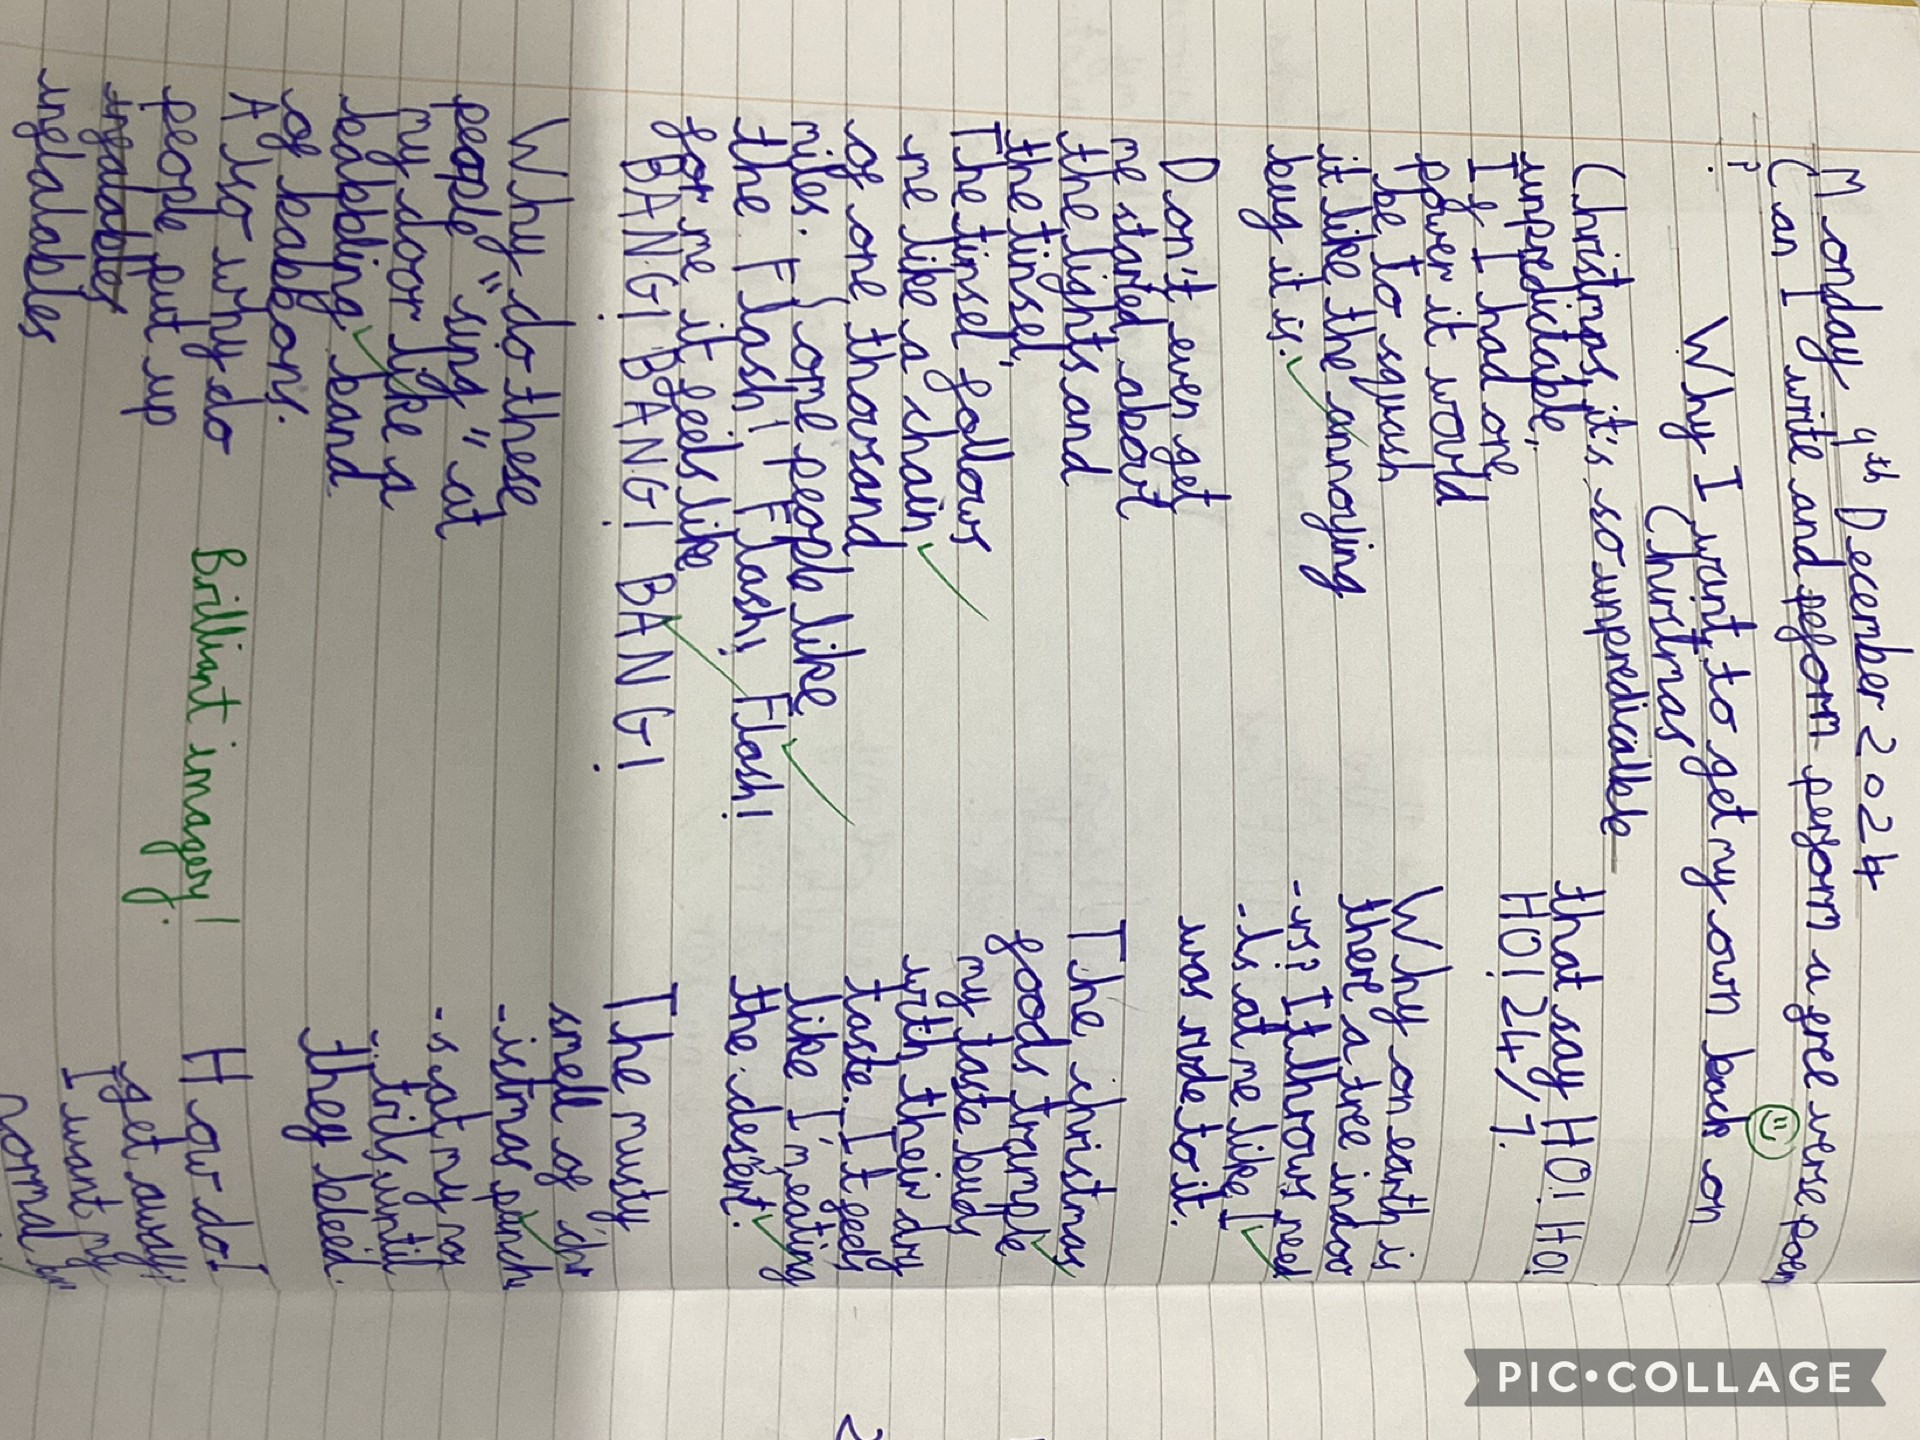 Monday 9th December 2024
Can I write and peform perform a free verse poem
?
Why I want to get my own back on
Christmas
Christmas, it's so unpredicalble
unpredictable,
If I had one
power it would
be to squash
it like the annoying
bug it is.
Don't even get
me started about
the lights and
the tinsel,
The tinsel follows
me like a chain
of one thousand
miles. Some people like
the Flash! Flash! Flash!
for me it feels like
BANG! BANG! BANG!
Why do these
people "sing" at
my door like a
babbling band
of babbons.
Also why do
people put up
inflatables
that say HO! HO!
HO! 24/7.
Why on earth is
there a tree indoo
-rs? It throws need
-ls at me like I
was rude to it.
The christmas
foods trample
my taste buds
with their dry
taste. It feels
like I'm eating
the desert.
The musty
smell of chr
-istmas punch
-s at my nos
-trils until
they bleed.
How do I
get away!
I want my
normal
Brilliant imagery!
PIC•COLLAGE